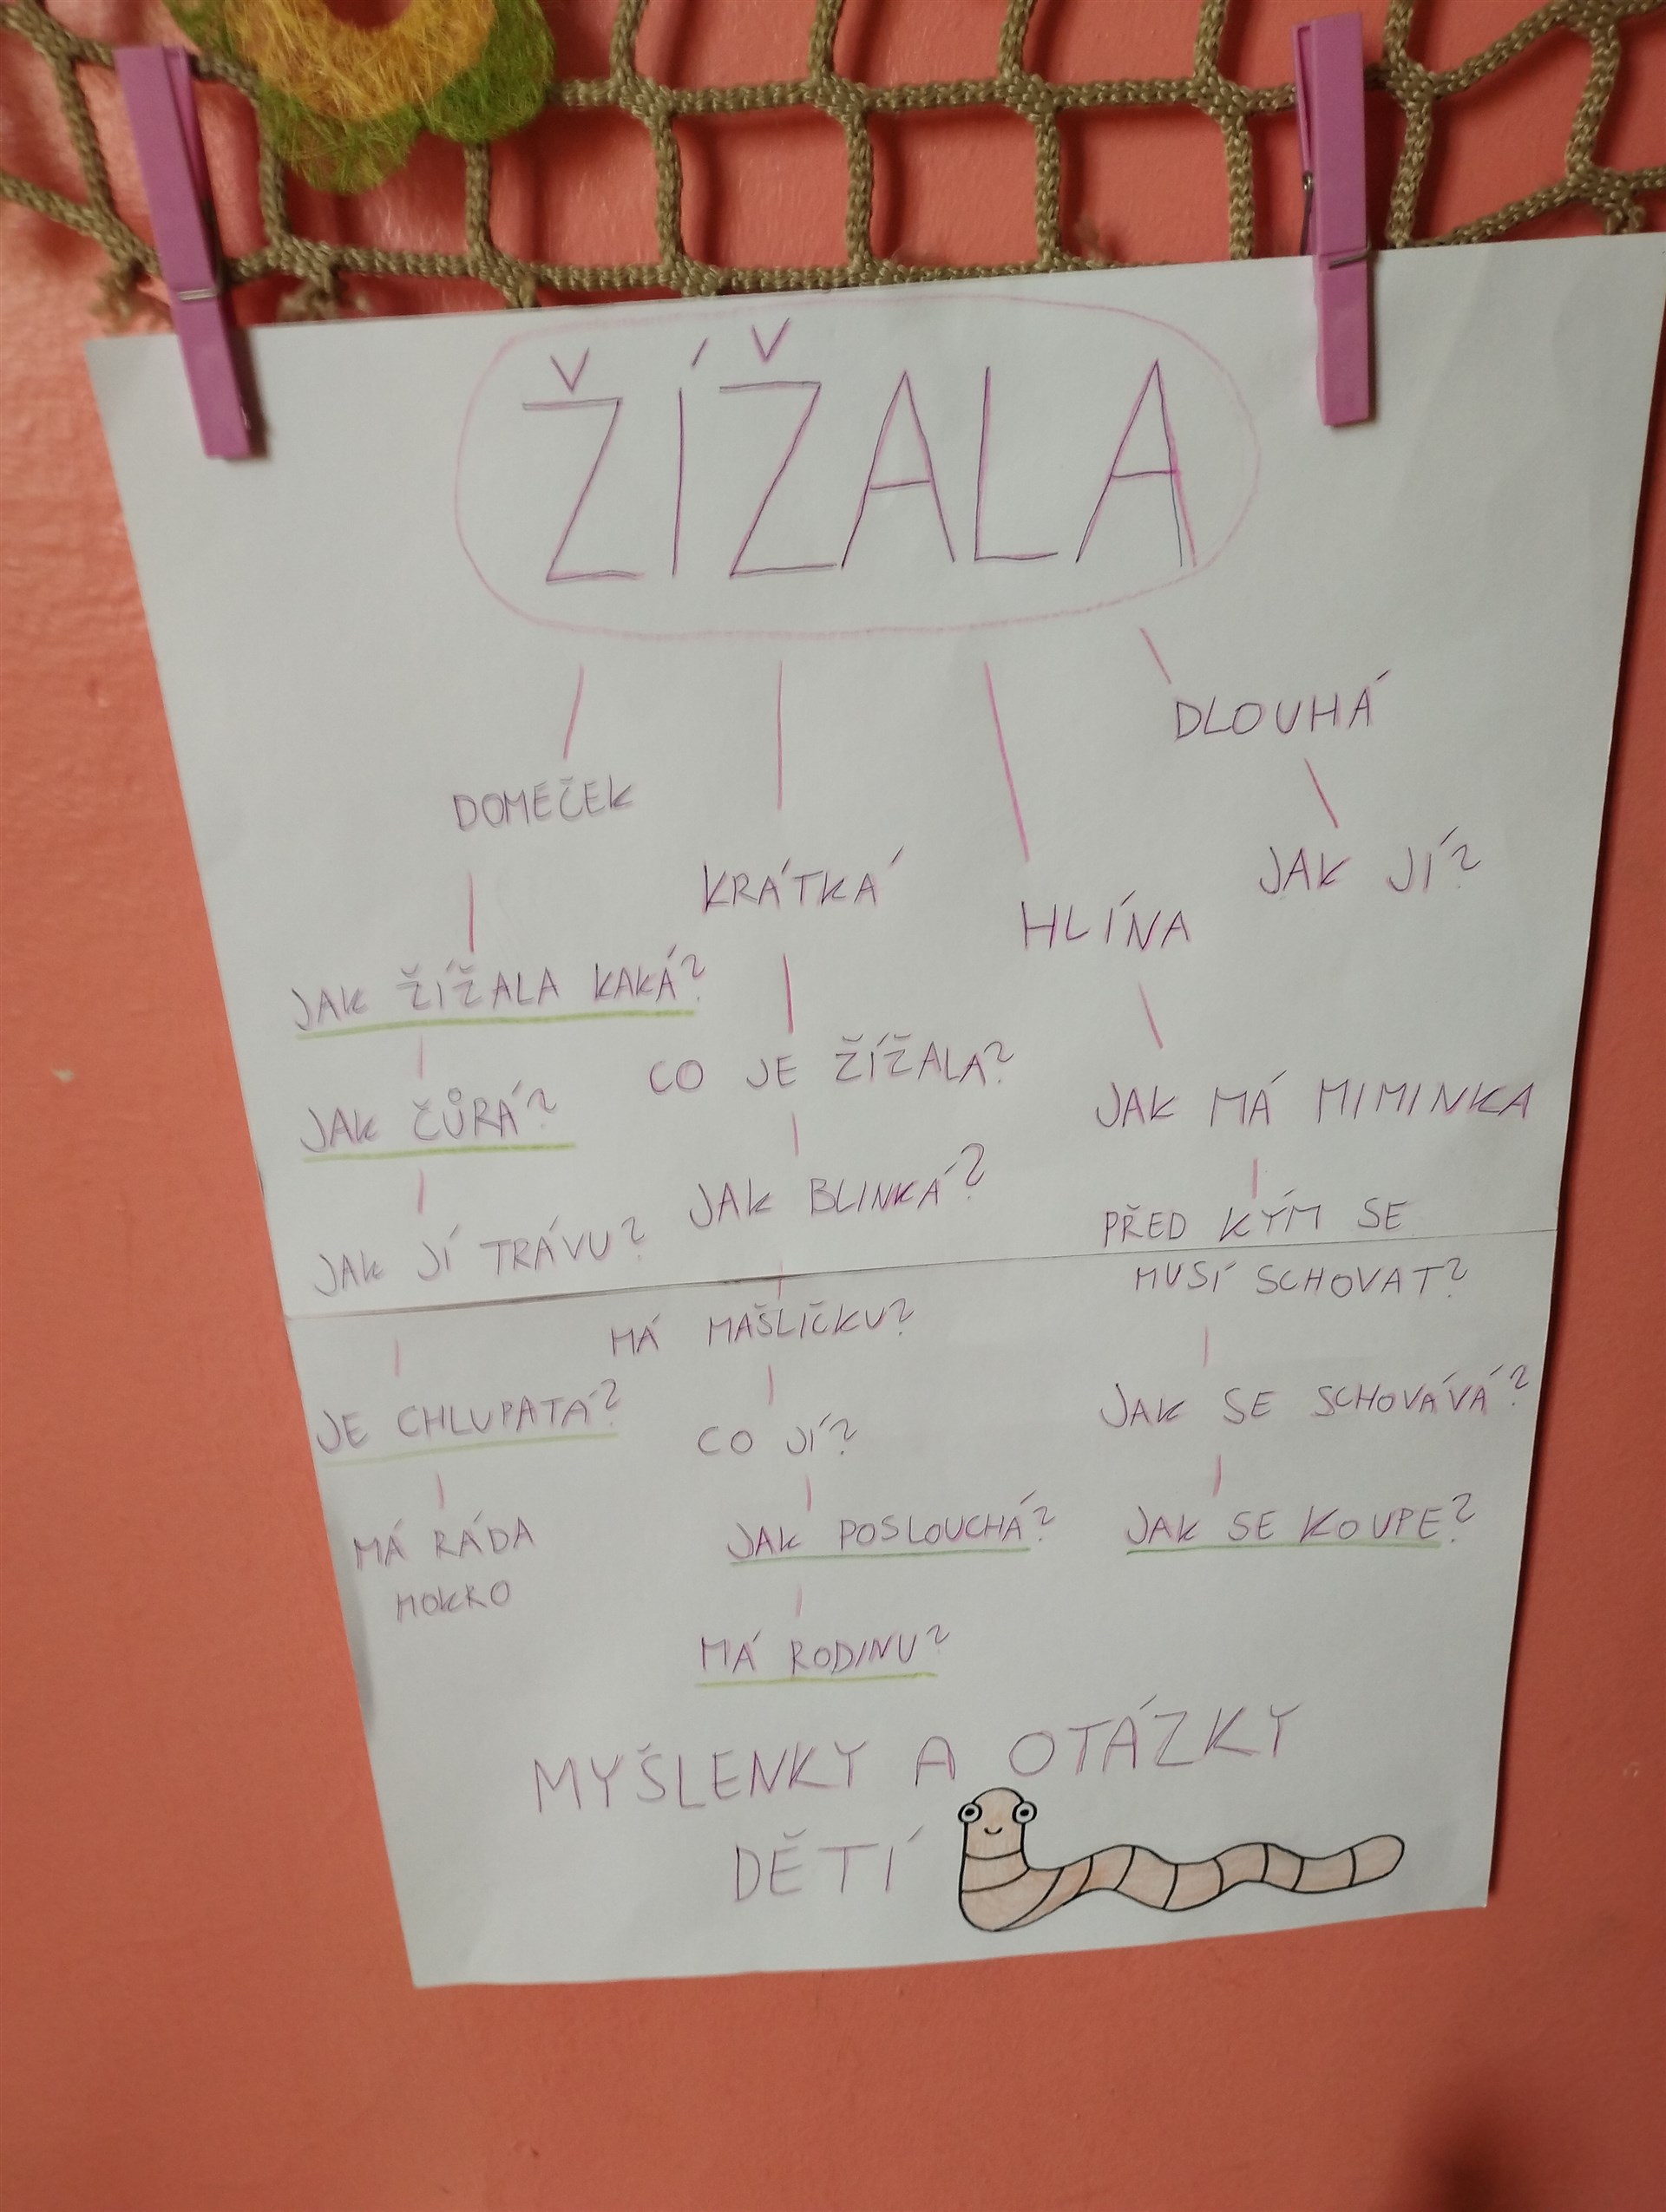 ŽÍŽALA
DOMEČEK
JAK ŽÍŽALA KAKÁ?
JAK ČŮRÁ?
JAK JÍ TRÁVU?
JE CHLUPATÁ?
MÁ RÁDA
MOKRO
KRÁTKÁ
CO JE ŽÍŽALA?
JAK BLINKÁ?
MÁ MAŠLIČKU?
CO JÍ?
JAK POSLOUCHÁ?
MÁ RODINU?
HLÍNA
JAK MÁ MIMINKA
PŘED KÝM SE
MUSÍ SCHOVAT?
JAK SE SCHOVÁVÁ?
JAK SE KOUPE?
DLOUHÁ
JAK JÍ?
MYŠLENKY A OTÁZKY
DĚTÍ